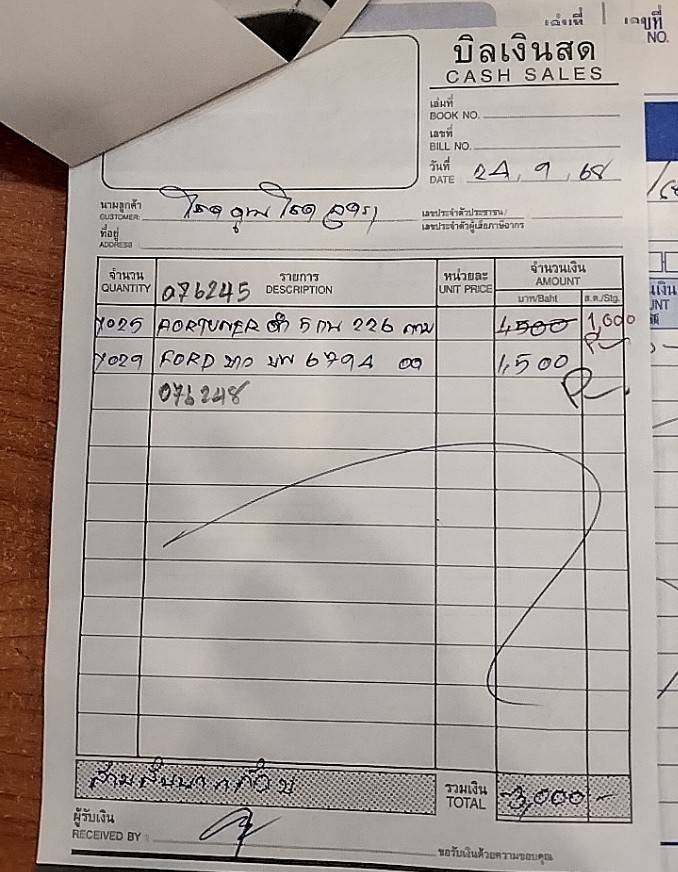 เล่มที่ เลขที่
NO.
บิลเงินสด
CASH SALES
เล่มที่
BOOK NO.
เลขที่
BILL NO.
วันที่
DATE 24, 9, 68
นามลูกค้า
CUSTOMER
เลขประจำตัวประชาชน/
เลขประจำตัวผู้เสียภาษีอากร
ที่อยู่
ADDRESS
จำนวน รายการ หน่วยละ จำนวนเงิน
QUANTITY 076245 DESCRIPTION UNIT PRICE AMOUNT
บาท/Baht ส.ต./Stg.
Y025 FORTUNER ดำ 5กน 226 กทม 1,500 1,000
Y029 FORD ขาว 6794 1,500
076248
สามพันบาท
รวมเงิน
TOTAL 3,000 -
ผู้รับเงิน
RECEIVED BY
ขอรับเงินด้วยความขอบคุณ